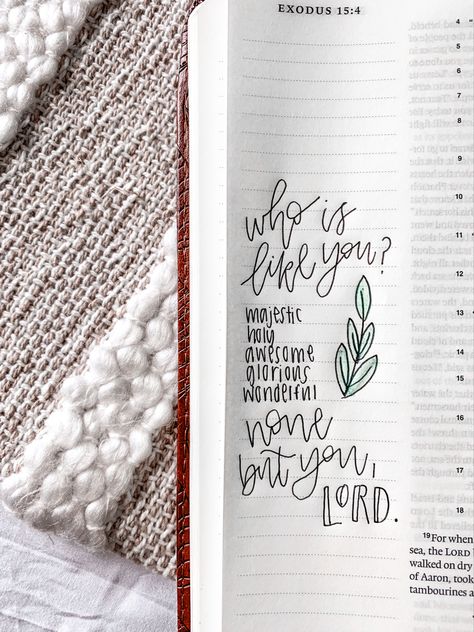 EXODUS 15:4
who is
like you?
majestic
holy
awesome
glorious
wonderful
none
but you,
LORD.
4
5
6
7
8
9
10
11
12
13
14
15
16
17
18
19 For when
sea, the LORD
walked on dry
of Aaron, took
tambourines a